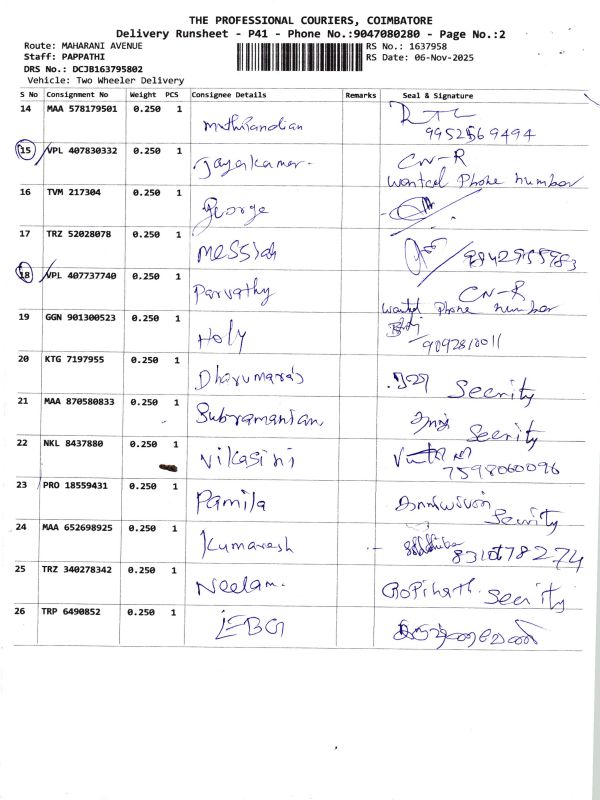 THE PROFESSIONAL COURIERS, COIMBATORE
Delivery Runsheet - P41 - Phone No.:9047080280 - Page No.:2
Route: MAHARANI AVENUE RS No.: 1637958
Staff: PAPPATHI RS Date: 06-Nov-2025
DRS No.: DCJB163795802
Vehicle: Two Wheeler Delivery
S No Consignment No Weight PCS Consignee Details Remarks Seal & Signature
14 MAA 578179501 0.250 1 Muthipandian
9952569494
15 VPL 407830332 0.250 1 Jayakumar. CN-R
Wanted Phone number
16 TVM 217304 0.250 1 George
17 TRZ 52028078 0.250 1 Messiah
18 VPL 407737740 0.250 1 Parvathy CN-R
Wanted Phone number
19 GGN 901300523 0.250 1 Holy
9092810011
20 KTG 7197955 0.250 1 Dharumaraj Secrity
21 MAA 870580833 0.250 1 Subramanian Secrity
22 NKL 8437880 0.250 1 Vikasini
7598060096
23 PRO 18559431 0.250 1 Pamila Secrity
24 MAA 652698925 0.250 1 Kumaresh
25 TRZ 340278342 0.250 1 Neelam. Gopinath. Secrity
26 TRP 6490852 0.250 1 LEBG